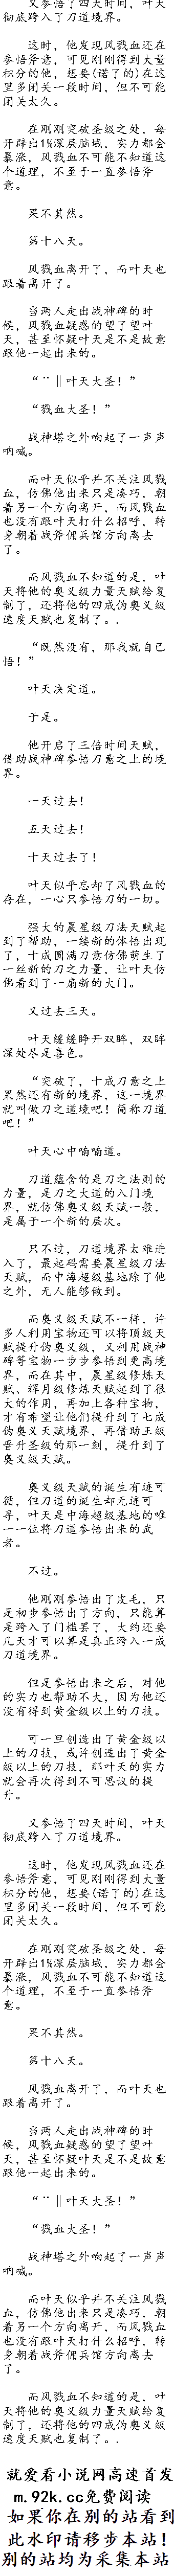 又参悟了四天时间，叶天
彻底跨入了刀道境界。
这时，他发现风戬血还在
参悟斧意，可见刚刚得到大量
积分的他，想要(诺了的)在这
里多闭关一段时间，但不可能
闭关太久。
在刚刚突破圣级之处，每
开辟出1%深层脑域，实力都会
暴涨，风戬血不可能不知道这
个道理，不至于一直参悟斧
意。
果不其然。
第十八天。
风戬血离开了，而叶天也
跟着离开了。
当两人走出战神碑的时
候，风戬血疑惑的望了望叶
天，甚至怀疑叶天是不是故意
跟他一起出来的。
“¨‖叶天大圣！”
“戬血大圣！”
战神塔之外响起了一声声
呐喊。
而叶天似乎并不关注风戬
血，仿佛他出来只是凑巧，朝
着另一个方向离开，而风戬血
也没有跟叶天打什么招呼，转
身朝着战斧佣兵馆方向离去
了。
而风戬血不知道的是，叶
天将他的奥义级力量天赋给复
制了，还将他的四成伪奥义级
速度天赋也复制了。.
“既然没有，那我就自己
悟！”
叶天决定道。
于是。
他开启了三倍时间天赋，
借助战神碑参悟刀意之上的境
界。
一天过去！
五天过去！
十天过去了！
叶天似乎忘却了风戬血的
存在，一心只参悟刀的一切。
强大的晨星级刀法天赋起
到了帮助，一缕新的体悟出现
了，十成圆满刀意仿佛萌生了
一丝新的刀之力量，让叶天仿
佛看到了一扇新的大门。
又过去三天。
叶天缓缓睁开双眸，双眸
深处尽是喜色。
“突破了，十成刀意之上
果然还有新的境界，这一境界
就叫做刀之道境吧！简称刀道
吧！”
叶天心中喃喃道。
刀道蕴含的是刀之法则的
力量，是刀之大道的入门境
界，就仿佛奥义级天赋一般，
是属于一个新的层次。
只不过，刀道境界太难进
入了，最起码需要晨星级刀法
天赋，而中海超级基地除了他
之外，无人能够做到。
而奥义级天赋不一样，许
多人利用宝物还可以将顶级天
赋提升伪奥义级，又利用战神
碑等宝物一步步参悟到更高境
界，而在其中，晨星级修炼天
赋、辉月级修炼天赋起到了很
大的作用，再加上各种宝物，
才有希望让他们提升到了七成
伪奥义天赋境界，再借助王级
晋升圣级的那一刻，提升到了
奥义级天赋。
奥义级天赋的诞生有迹可
循，但刀道的诞生却无迹可
寻，叶天是中海超级基地的唯
一一位将刀道参悟出来的武
者。
不过。
他刚刚参悟出了皮毛，只
是初步参悟出了方向，只能算
是跨入了门槛罢了，大约还要
几天才可以算是真正跨入一成
刀道境界。
但是参悟出来之后，对他
的实力也帮助不大，因为他还
没有得到黄金级以上的刀技。
可一旦创造出了黄金级以
上的刀技，或许创造出了黄金
级以上的刀技，那叶天的实力
就会再次得到不可思议的提
升。
又参悟了四天时间，叶天
彻底跨入了刀道境界。
这时，他发现风戬血还在
参悟斧意，可见刚刚得到大量
积分的他，想要(诺了的)在这
里多闭关一段时间，但不可能
闭关太久。
在刚刚突破圣级之处，每
开辟出1%深层脑域，实力都会
暴涨，风戬血不可能不知道这
个道理，不至于一直参悟斧
意。
果不其然。
第十八天。
风戬血离开了，而叶天也
跟着离开了。
当两人走出战神碑的时
候，风戬血疑惑的望了望叶
天，甚至怀疑叶天是不是故意
跟他一起出来的。
“¨‖叶天大圣！”
“戬血大圣！”
战神塔之外响起了一声声
呐喊。
而叶天似乎并不关注风戬
血，仿佛他出来只是凑巧，朝
着另一个方向离开，而风戬血
也没有跟叶天打什么招呼，转
身朝着战斧佣兵馆方向离去
了。
而风戬血不知道的是，叶
天将他的奥义级力量天赋给复
制了，还将他的四成伪奥义级
速度天赋也复制了。.
就爱看小说网高速首发
m.92k.cc免费阅读
如果你在别的站看到
此水印请移步本站！
别的站均为采集本站